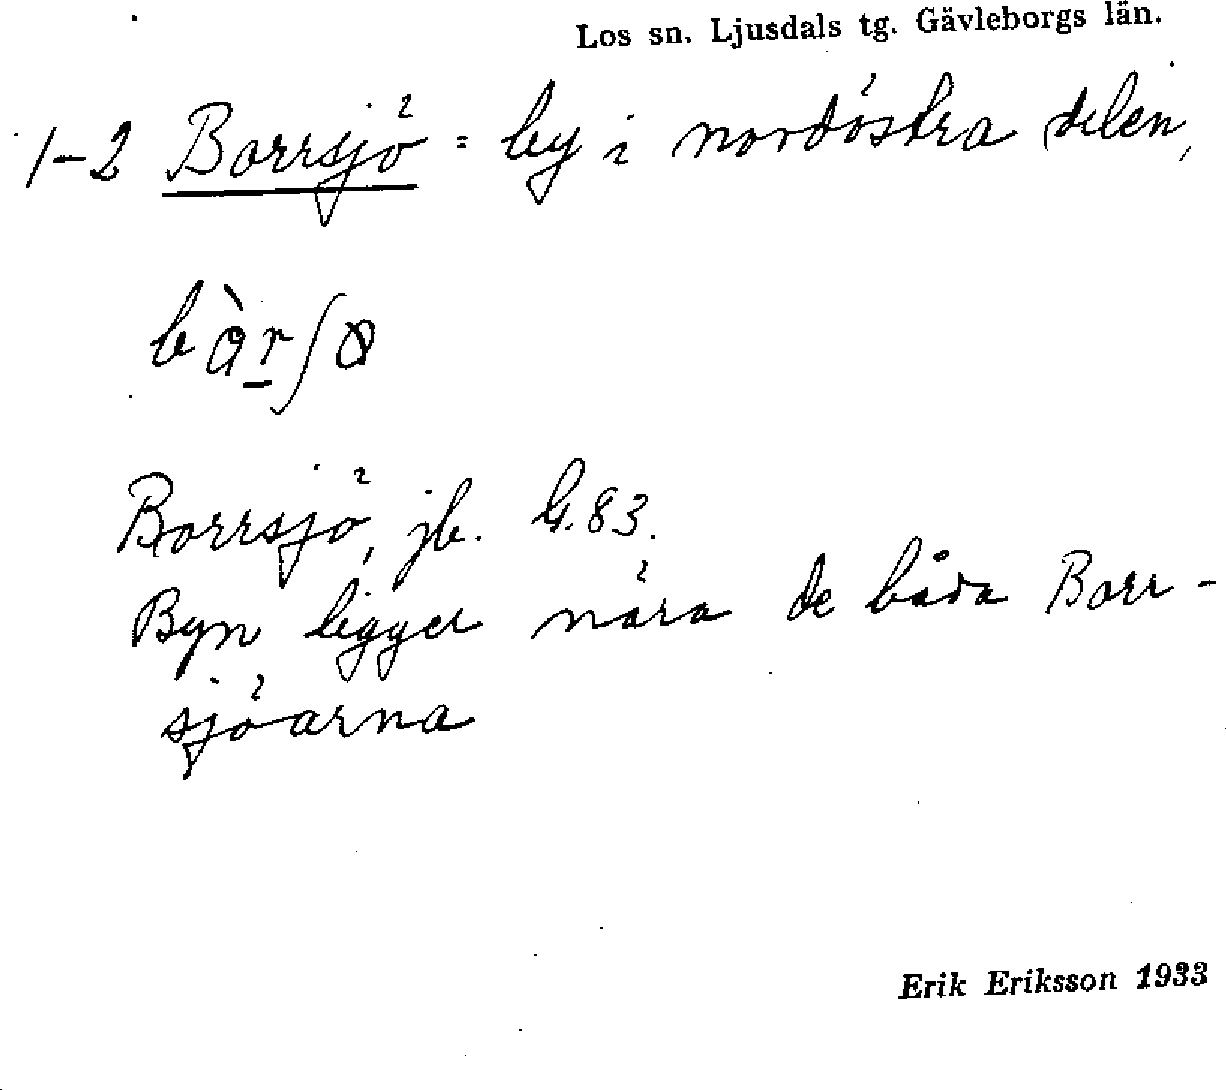 Los sn. Ljusdals tg. Gävleborgs län.
1-2 Borrsjö = by i nordöstra delen,
Borrsjö, jb. G. 83.
Byn ligger nära de båda Borr-
sjöarna
Erik Eriksson 1933